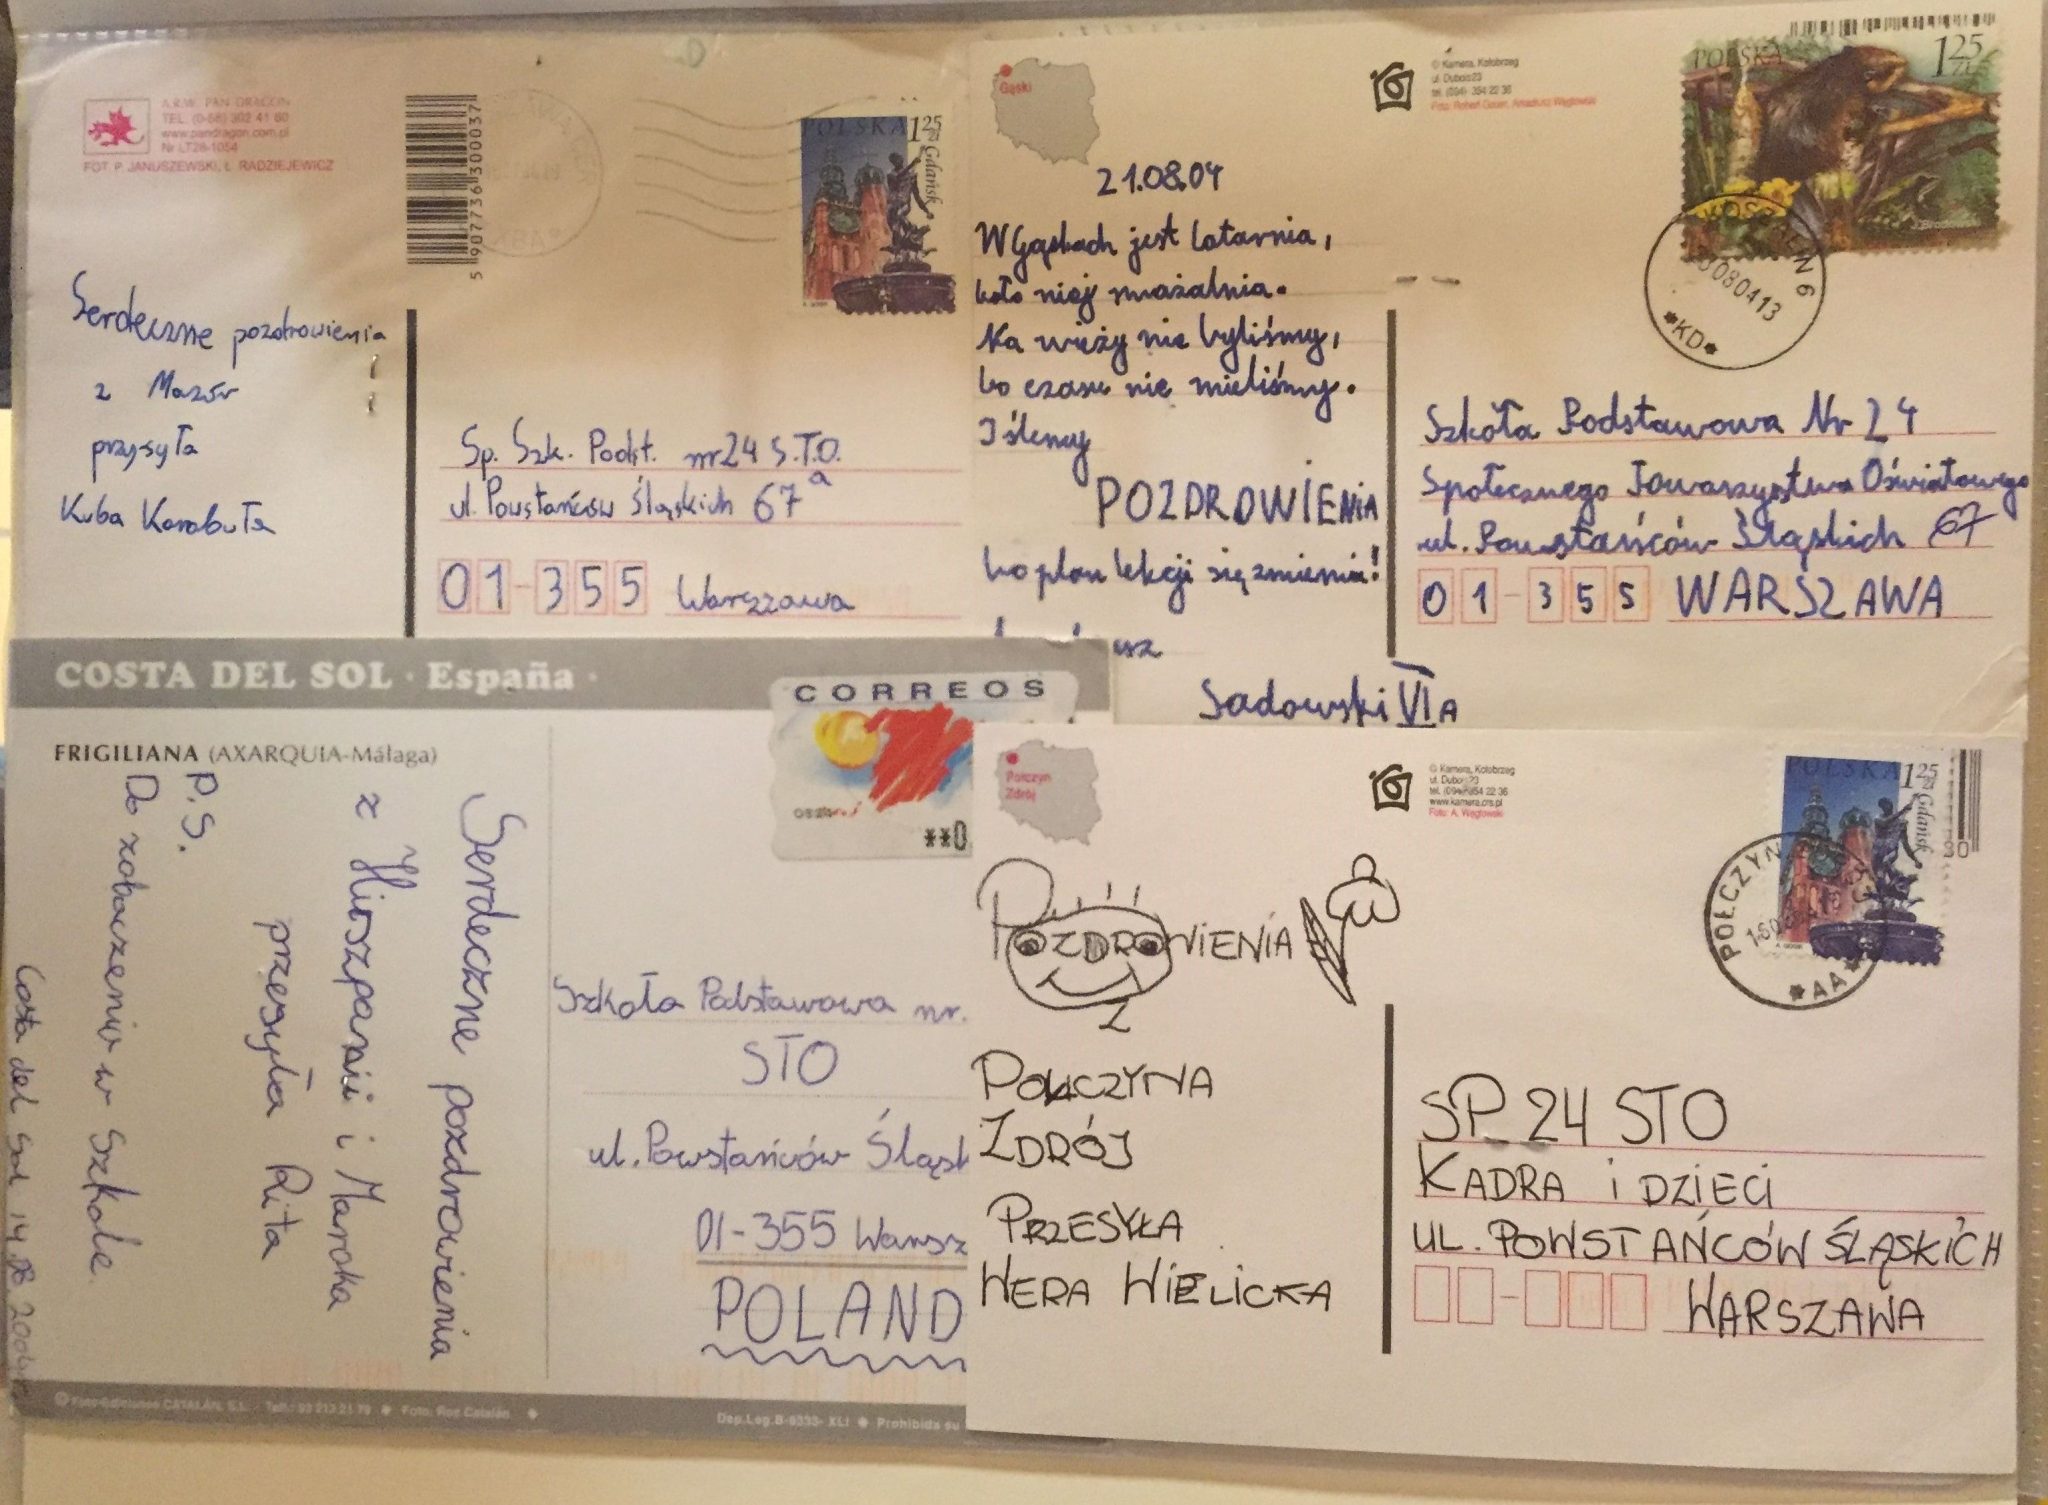 A.R.W. PAN DRAGON
TEL. (0-58) 302 41 60
www.pandragon.com.pl
Nr LT28-1054
FOT. P. JANUSZEWSKI, Ł. RADZIEJEWICZ
5 907736 300037
POLSKA 1 25 zł
Gdańsk
Serdeczne pozdrowienia
z Mazur
przysyła
Kuba Karabuła
Sp. Szk. Podst. nr 24 S.T.O.
ul. Powstańców Śląskich 67 a
01-355 Warszawa
Gąski
© Kamera, Kołobrzeg
ul. Dubois 23
tel. (094) 354 22 36
POLSKA 1 25 ZŁ
KOSZALIN 6
080413
*KD*
21.08.04
W Gąskach jest latarnia,
koło niej smażalnia.
Na wieży nie byliśmy,
bo czasu nie mieliśmy.
I ślemy
POZDROWIENIA
bo plan lekcji się zmienia!
Sadowski VI A
Szkoła Podstawowa Nr 24
Społecznego Towarzystwa Oświatowego
ul. Powstańców Śląskich 67
01-355 WARSZAWA
COSTA DEL SOL · España ·
CORREOS
**0
FRIGILIANA (AXARQUIA-Málaga)
Serdeczne pozdrowienia
z Hiszpanii i Maroka
przesyła Rita
P.S.
Do zobaczenia w Szkole.
Costa del Sol 14.08.2004
Szkoła Podstawowa nr.
STO
ul. Powstańców Śląsk
01-355 Warsz
POLAND
© Foto-Ediciones CATALÁN, S.L. - Telf.: 93 213 21 79 Foto: Roz Catalán
Dep. Leg. B-6333- XLI Prohibida su
Połczyn
Zdrój
© Kamera, Kołobrzeg
ul. Dubois 23
tel. (094) 354 22 36
www.kamera.crs.pl
Foto: A. Węglowski
POLSKA 1 25 zł
Gdańsk
30
POŁCZYN
*AA*
POZDROWIENIA
Z
POŁCZYNA
ZDRÓJ
PRZESYŁA
WERA WIELICKA
SP 24 STO
KADRA I DZIECI
UL. POWSTAŃCÓW ŚLĄSKICH
WARSZAWA